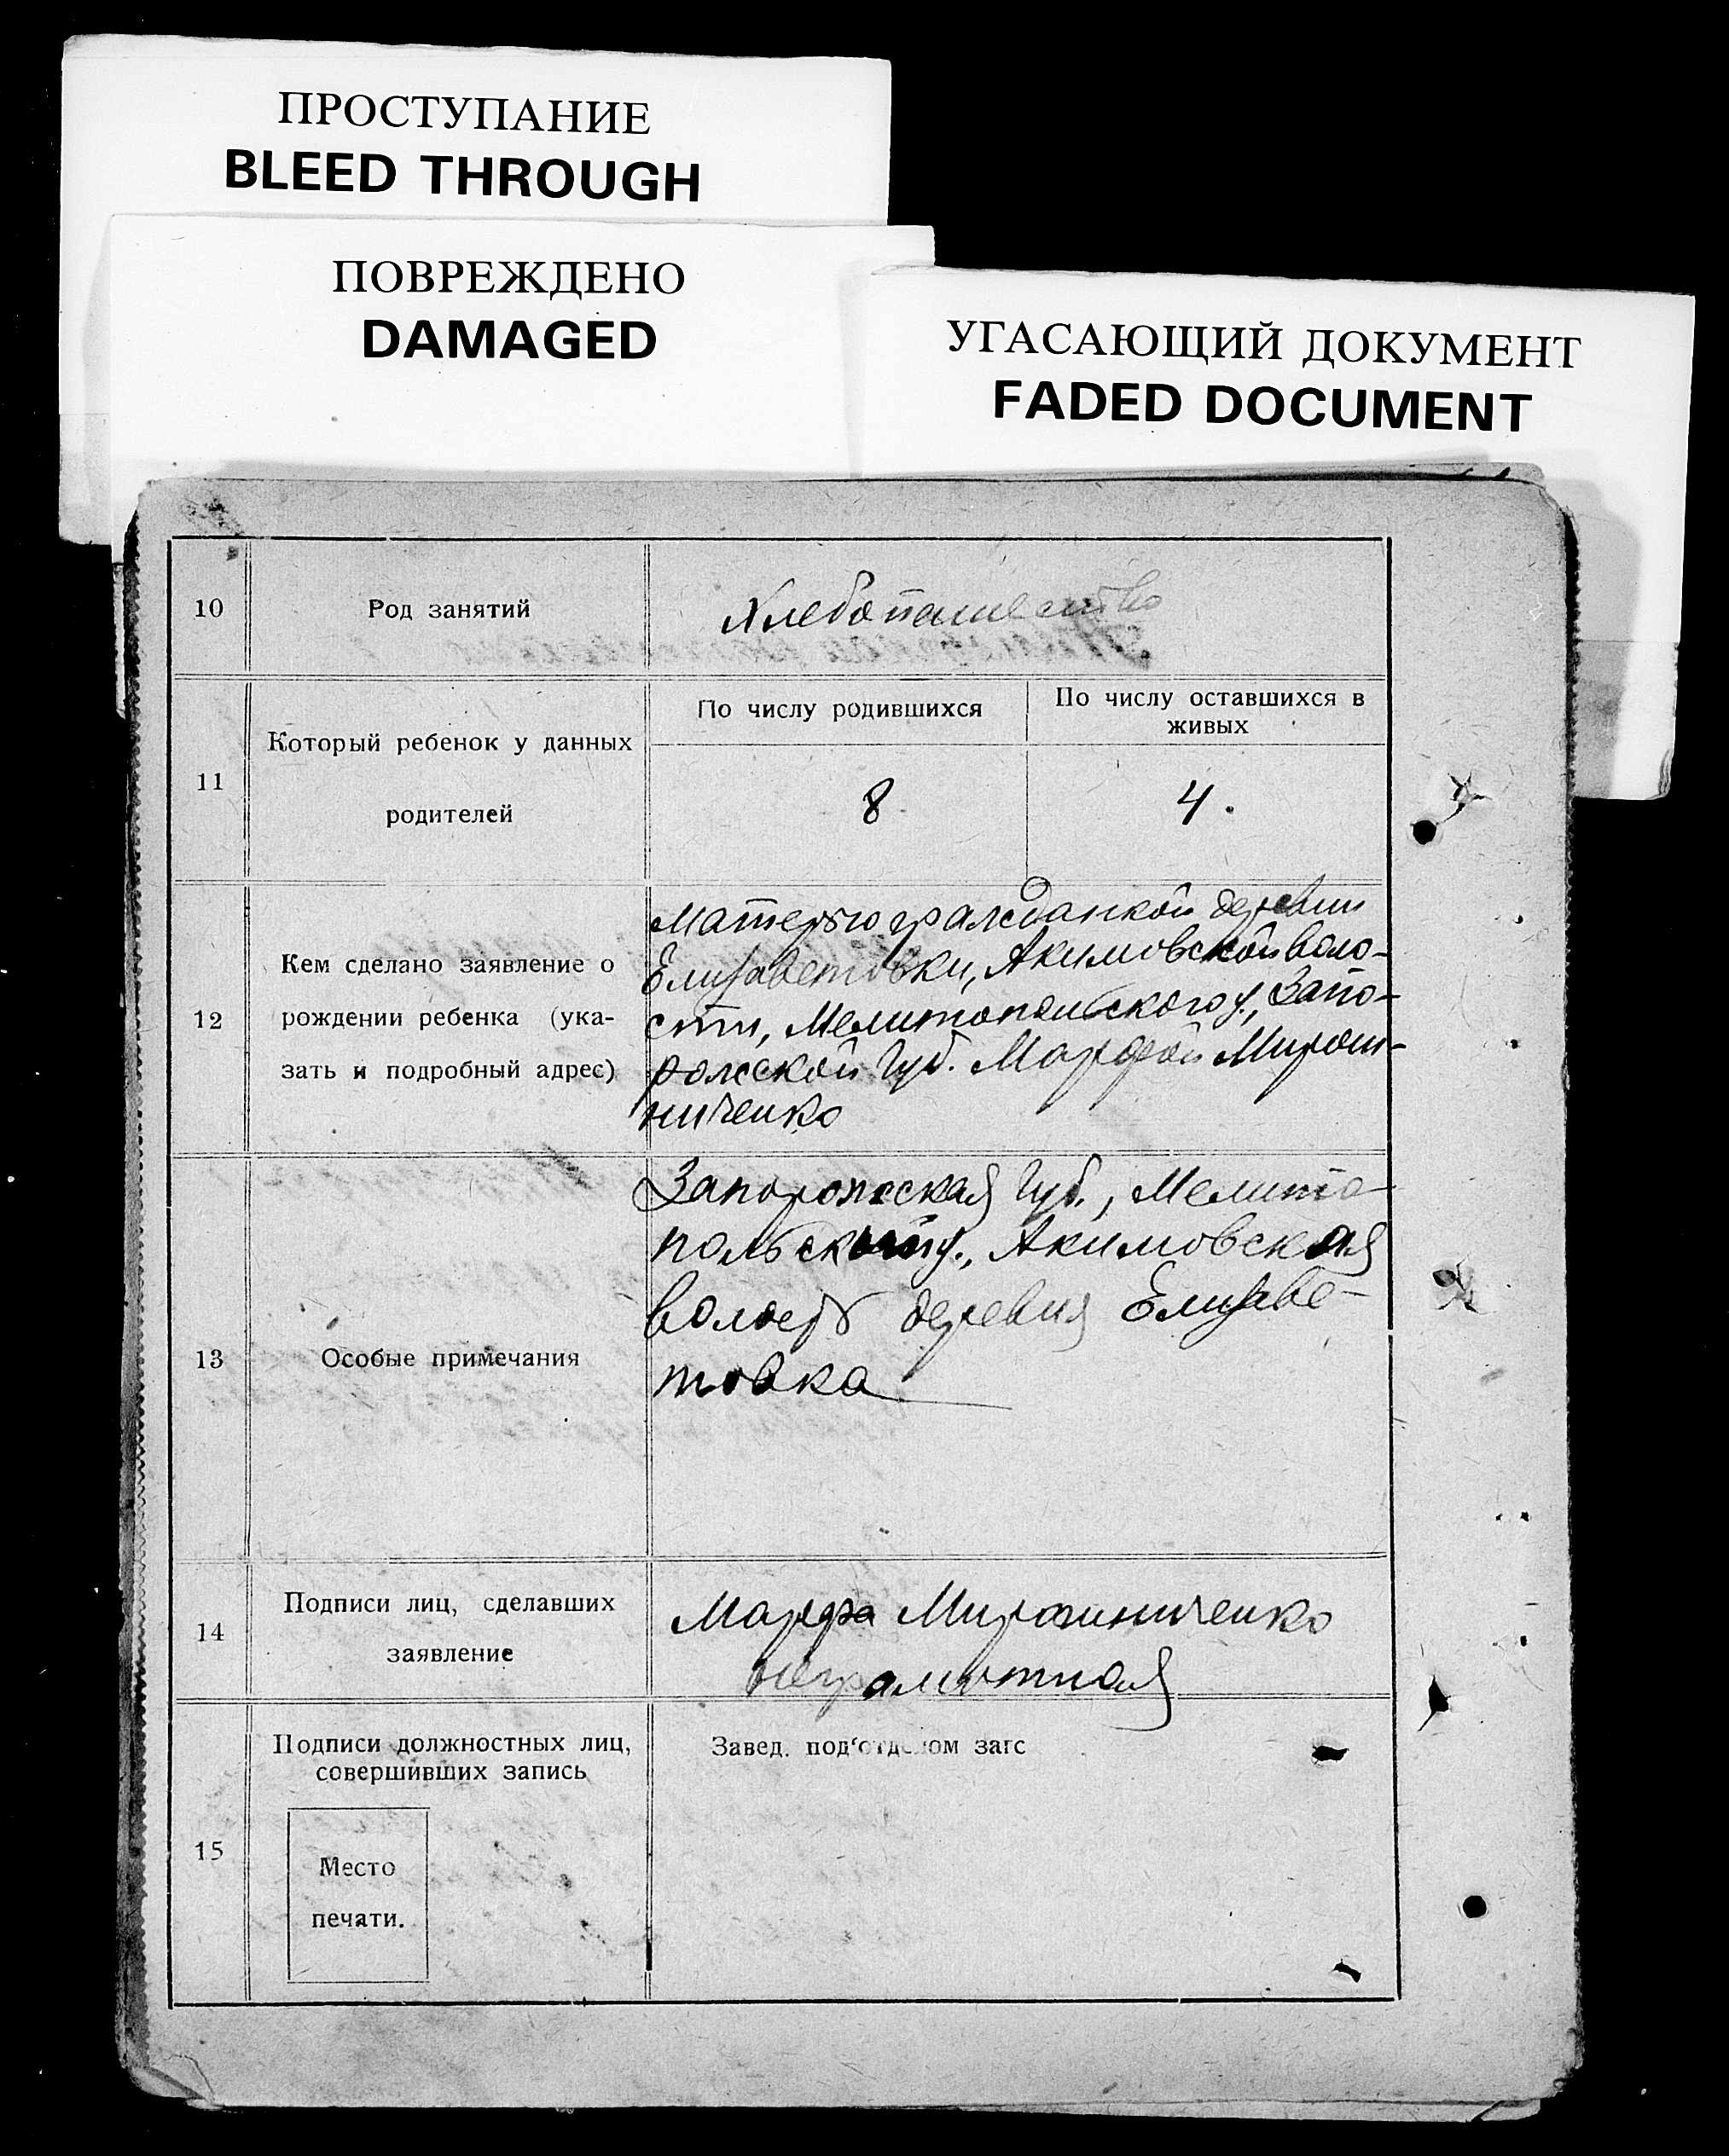 ПРОСТУПАНИЕ
BLEED THROUGH
ПОВРЕЖДЕНО
DAMAGED
УГАСАЮЩИЙ ДОКУМЕНТ
FADED DOCUMENT
10
Род занятий
Хлебопашество
11
Который ребенок у данных
родителей
По числу родившихся
По числу оставшихся в
живых
8
4.
12
Кем сделано заявление о
рождении ребенка (ука-
зать и подробный адрес)
Матерью гражданкой деревни
Елизаветовки, Акимовской воло-
сти, Мелитопольского у., Запо-
рожской Губ. Марфой Мирош-
ниченко
13
Особые примечания
Запорожская Губ., Мелито-
польский у., Акимовская
волость деревня Елизаве-
товка
14
Подписи лиц, сделавших
заявление
Марфа Мирошниченко
неграмотная
15
Подписи должностных лиц,
совершивших запись
Место
печати.
Завед. под'отделом загс